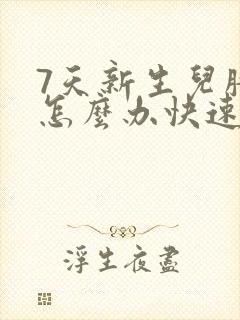 7天新生兒
怎麼办快速
浮生夜盡